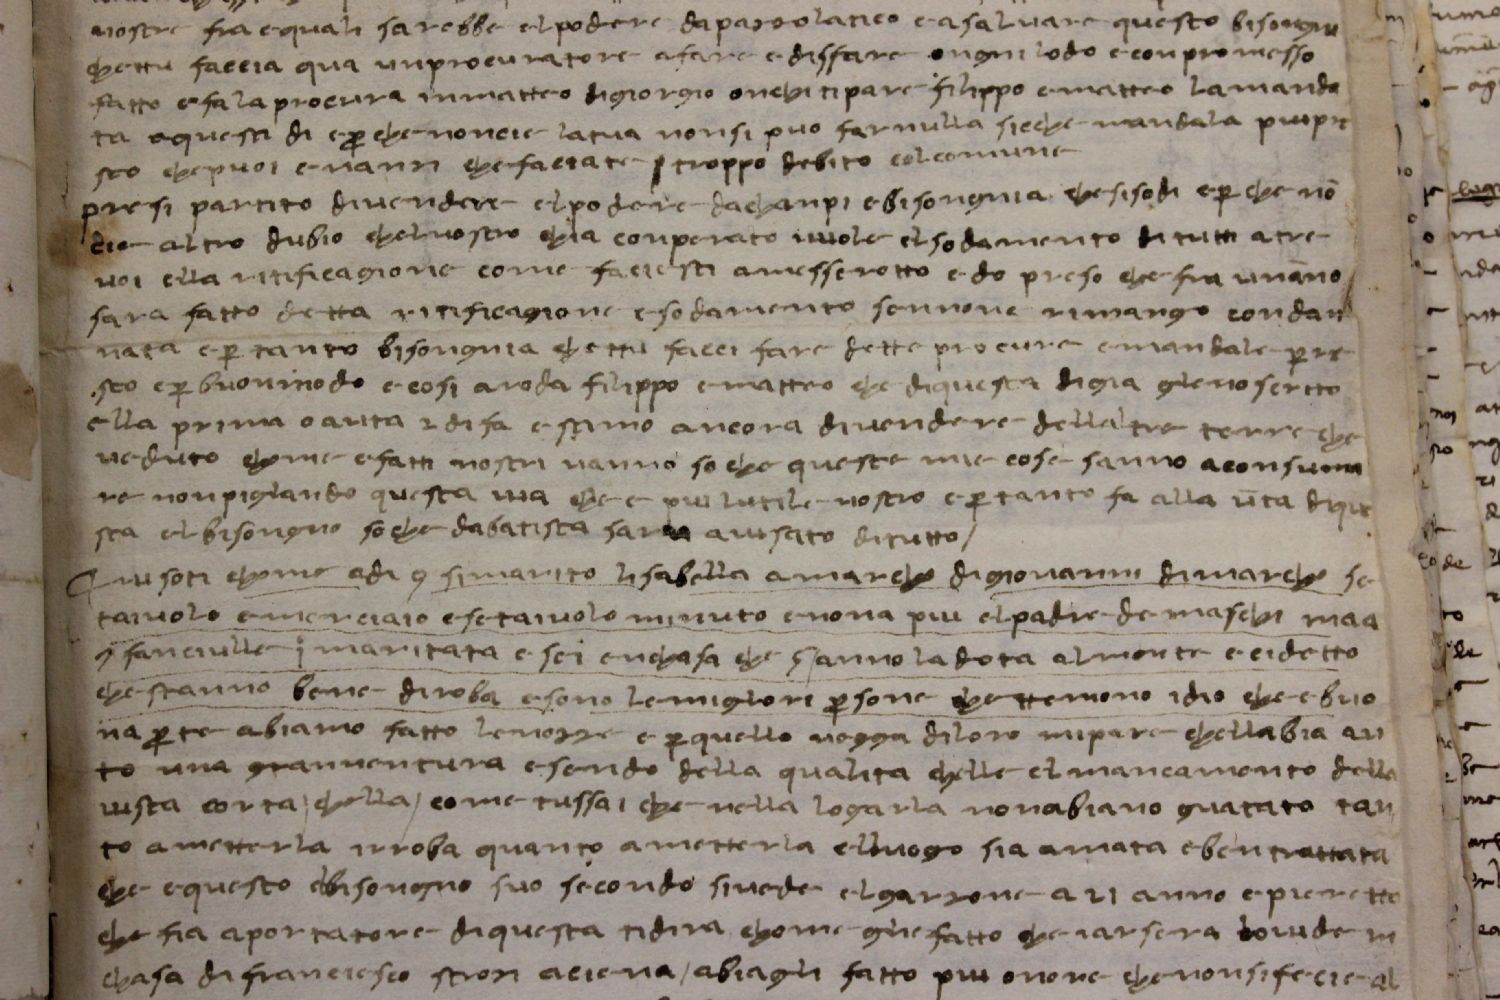 nostre fra e quali sarebbe el podere da pazolatico e a salvare questo bisongnia
che ttu faccia qua un procuratore a fare e disfare ongni lodo e conpromesso
fatto e fa la procura in matteo di giorgio o in chi ti pare filippo e matteo l anno manda
ta a questi di e però che non cie la tua non si puo far nulla sicche mandala piu pre
sto che puoi e nanzi che facciate troppo debito col comune
presi partito di vendere el podere da champi e bisongnia che si sodi e per che nō
cie altro dubio che l vostro chi a conperato vuole el sodamento di tutti a tre
voi e lla ritificagione come faciesti a messer otto e do preso che fra un āno
sara fatto detta ritificagione e sodamento sennone rimango condan
nata e per tanto bisongnia che ttu facci fare dette procure e mandale pre
sto e per buon modo e cosi a roda filippo e matteo che di questa di gia glieno scritto
e lla prima o auta 2 di fa e stimo ancora di vendere dell altre terre che
veduto chome e fatti nostri vanno so che queste mie cose sanno a consuma
re non pigliando questa via che e piu l utile nostro e per tanto fa alla ūta di que
sta el bisongno so che da batista sara avisato di tutto /
Aviso ti chome a di 9 si marito lisabella a marcho di giovanni di marcho se
taiuolo e merciaio e setaiuolo minuto e non a piu el padre de maschi ma a
9 fanciulle 3 maritata e sei en chasa che s anno la dota al monte e ci detto
che stanno bene di roba e sono le migliori persone che ttemono idio che e buo
na parte abiamo fatto le nozze e per quello vegga di loro mi pare che ll abia au
to una gran ventura esendo della qualita ch ell e el mancamento della
vista corta ch ell a / come tu ssai che nella logarla non abiano guatato tan
to a metterla i rroba quanto a metterla e lluogo sia amata e ben trattata
che e questo e bisongno suo secondo si vede el garzone a 21 anno e pieretto
che fia aportatore di questa ti dira chome glie fatto che iarsera lo vide in
chasa di franciescho strozi a ciena / abiagli fatto piu onore che non si fecie al